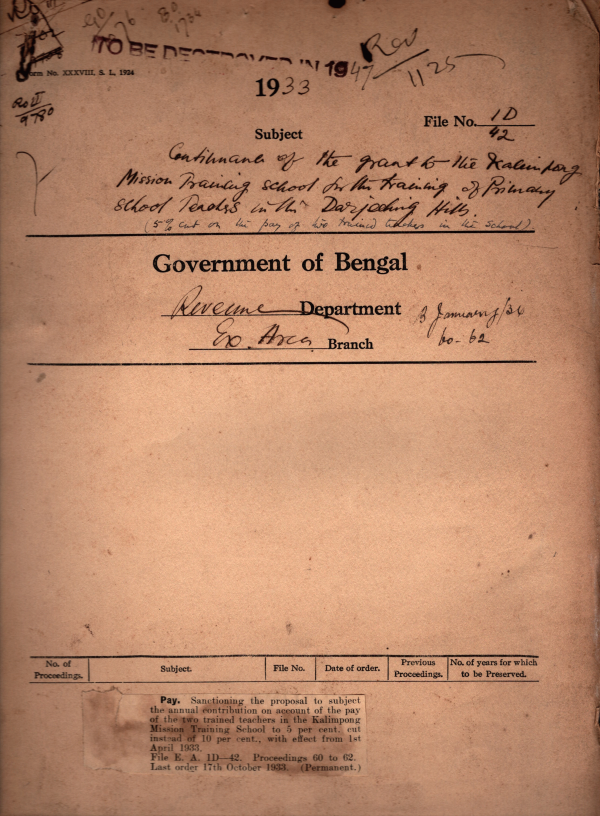 TO BE DESTROYED IN 1947
Rev
1125
Form No. XXXVIII, S. L, 1934
1933
Rev II
9780
File No. 1D
42
Subject
Continuance of the grant to the Kalimpong
Mission Training school for the training of Primary
school Teachers in the Darjeeling Hills.
(5% cut on the pay of two trained teachers in the school)
Government of Bengal
Revenue Department
Ex. Area Branch
B January/34
60-62
No. of Proceedings.
Subject.
File No.
Date of order.
Previous Proceedings.
No. of years for which to be Preserved.
Pay. Sanctioning the proposal to subject
the annual contribution on account of the pay
of the two trained teachers in the Kalimpong
Mission Training School to 5 per cent. cut
instead of 10 per cent., with effect from 1st
April 1933.
File E. A. 1D—42. Proceedings 60 to 62.
Last order 17th October 1933. (Permanent.)